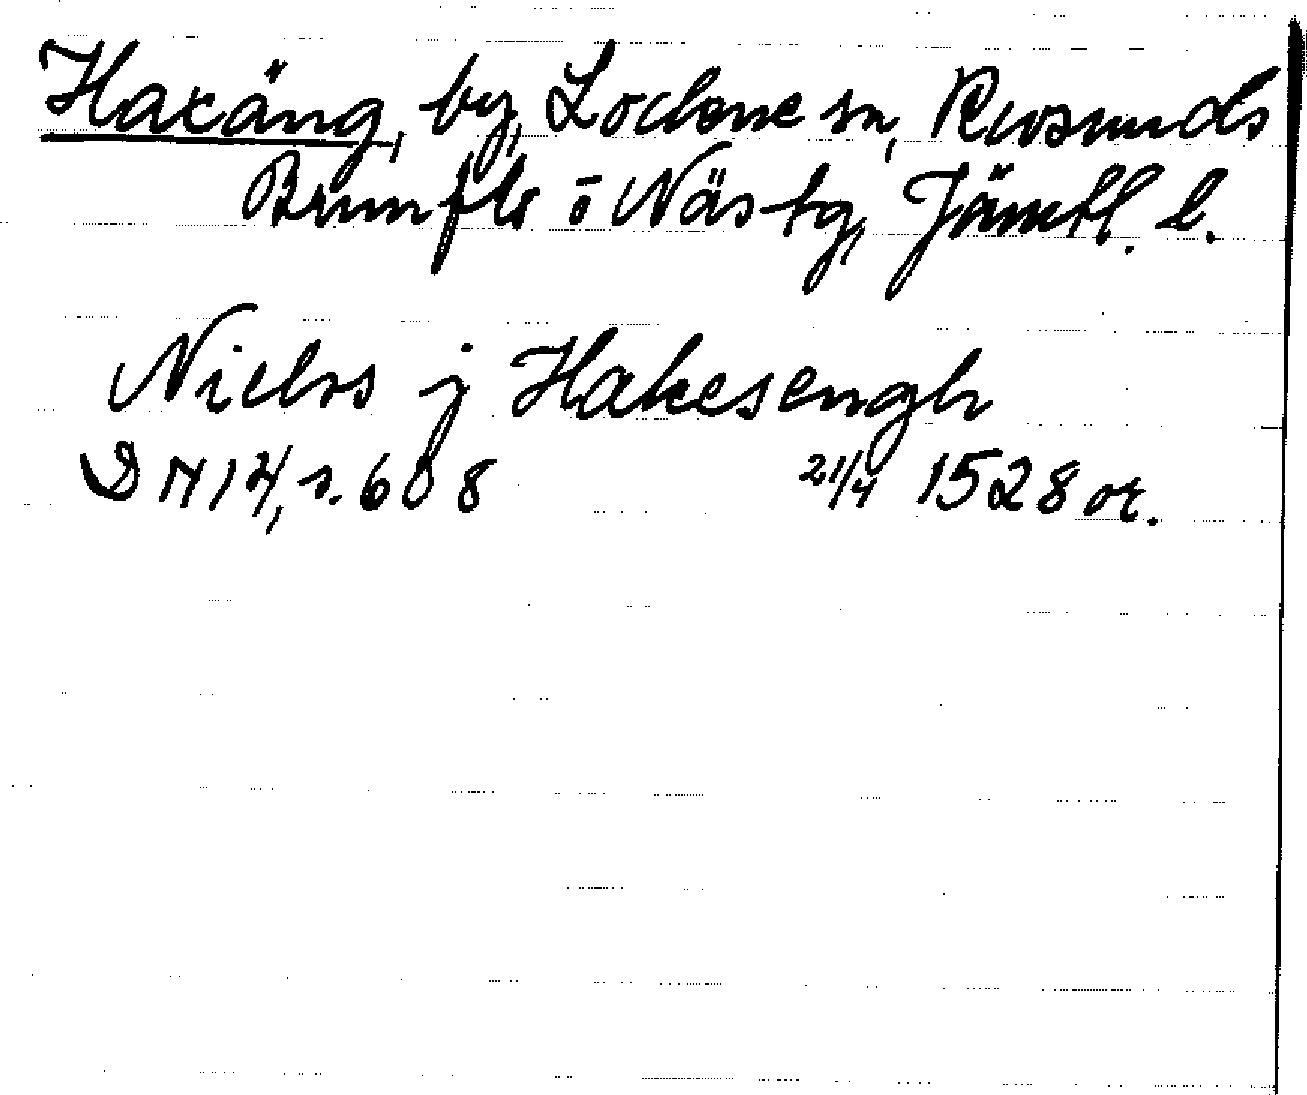 Haxäng, by, Lockne sn, Revsunds
Brunflo o Näs tg, Jämtl. l.
Nielss j Hakesengh
DN 14, s. 608 21/4 1528 or.